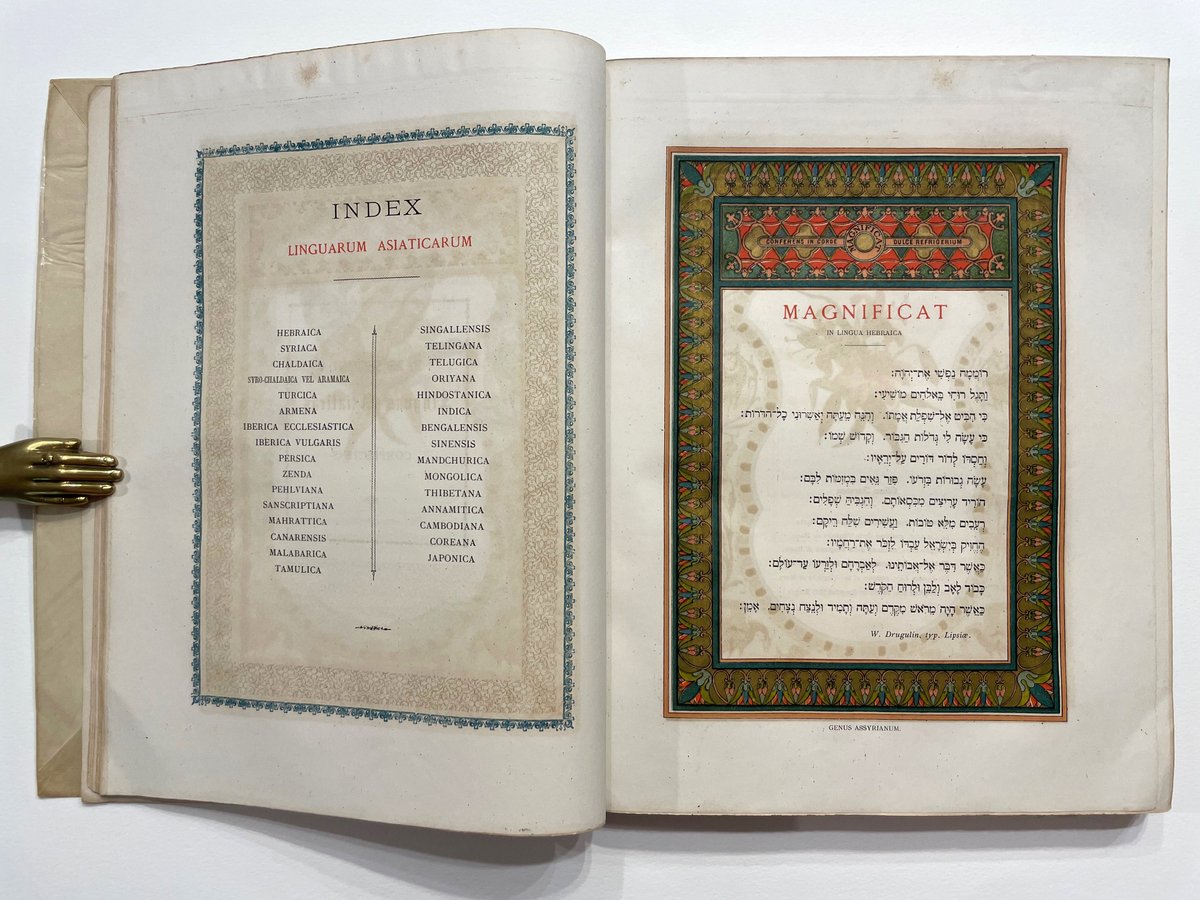 INDEX
LINGUARUM ASIATICARUM
HEBRAICA
SYRIACA
CHALDAICA
SYRO-CHALDAICA VEL ARAMAICA
TURCICA
ARMENA
IBERICA ECCLESIASTICA
IBERICA VULGARIS
PERSICA
ZENDA
PEHLVIANA
SANSCRIPTIANA
MAHRATTICA
CANARENSIS
MALABARICA
TAMULICA
SINGALLENSIS
TELINGANA
TELUGICA
ORIYANA
HINDOSTANICA
INDICA
BENGALENSIS
SINENSIS
MANDCHURICA
MONGOLICA
THIBETANA
ANNAMITICA
CAMBODIANA
COREANA
JAPONICA
CONFERENS IN CORDE MAGNIFICAT DULCE REFRIGERIUM
MAGNIFICAT
IN LINGUA HEBRAICA
רוֹמְמָה נַפְשִׁי אֶת־יְהוָֹה:
וַתָּגֶל רוּחִי בֵּאלֹהִים מוֹשִׁיעִי:
כִּי הִבִּיט אֶל־שִׁפְלַת אֲמָתוֹ. וְהִנֵּה מֵעַתָּה יְאַשְּׁרוּנִי כָל־הַדֹּרוֹת:
כִּי עָשָׂה לִי גְדֹלוֹת הַגִּבּוֹר. וְקָדוֹשׁ שְׁמוֹ:
וְחַסְדּוֹ לְדוֹר דּוֹרִים עַל־יְרֵאָיו:
עָשָׂה גְבוּרוֹת בִּזְרֹעוֹ. פִּזַּר גֵּאִים בִּמְזִמּוֹת לִבָּם:
הוֹרִיד עָרִיצִים מִכִּסְאוֹתָם. וְהִגְבִּיהַּ שְׁפָלִים:
רְעֵבִים מִלֵּא טוֹבוֹת. וַעֲשִׁירִים שִׁלַּח רֵיקָם:
הֶחֱזִיק בְּיִשְׂרָאֵל עַבְדּוֹ לִזְכֹּר אֶת־רַחֲמָיו:
כַּאֲשֶׁר דִּבֶּר אֶל־אֲבוֹתֵינוּ. לְאַבְרָהָם וּלְזַרְעוֹ עַד־עוֹלָם:
כָּבוֹד לָאָב וְלַבֵּן וּלְרוּחַ הַקֹּדֶשׁ:
כַּאֲשֶׁר הָיָה מֵרֹאשׁ מִקֶּדֶם וְעַתָּה וְתָמִיד וּלְנֵצַח נְצָחִים. אָמֵן:
W. Drugulin, typ. Lipsiæ.
GENUS ASSYRIANUM.